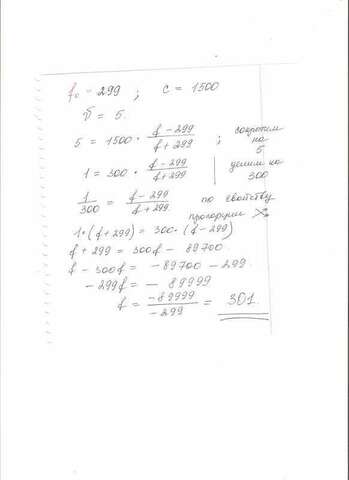 f₀ - 299 ; c = 1500
v = 5.
5 = 1500 · (f - 299)/(f + 299) ; сократим на 5
1 = 300 · (f - 299)/(f + 299) | делим на 300
1/300 = (f - 299)/(f + 299) по свойству пропорции
1 · (f + 299) = 300 · (f - 299)
f + 299 = 300f - 89700
f - 300f = - 89700 - 299
- 299f = - 89999
f = -89999/-299 = 301.